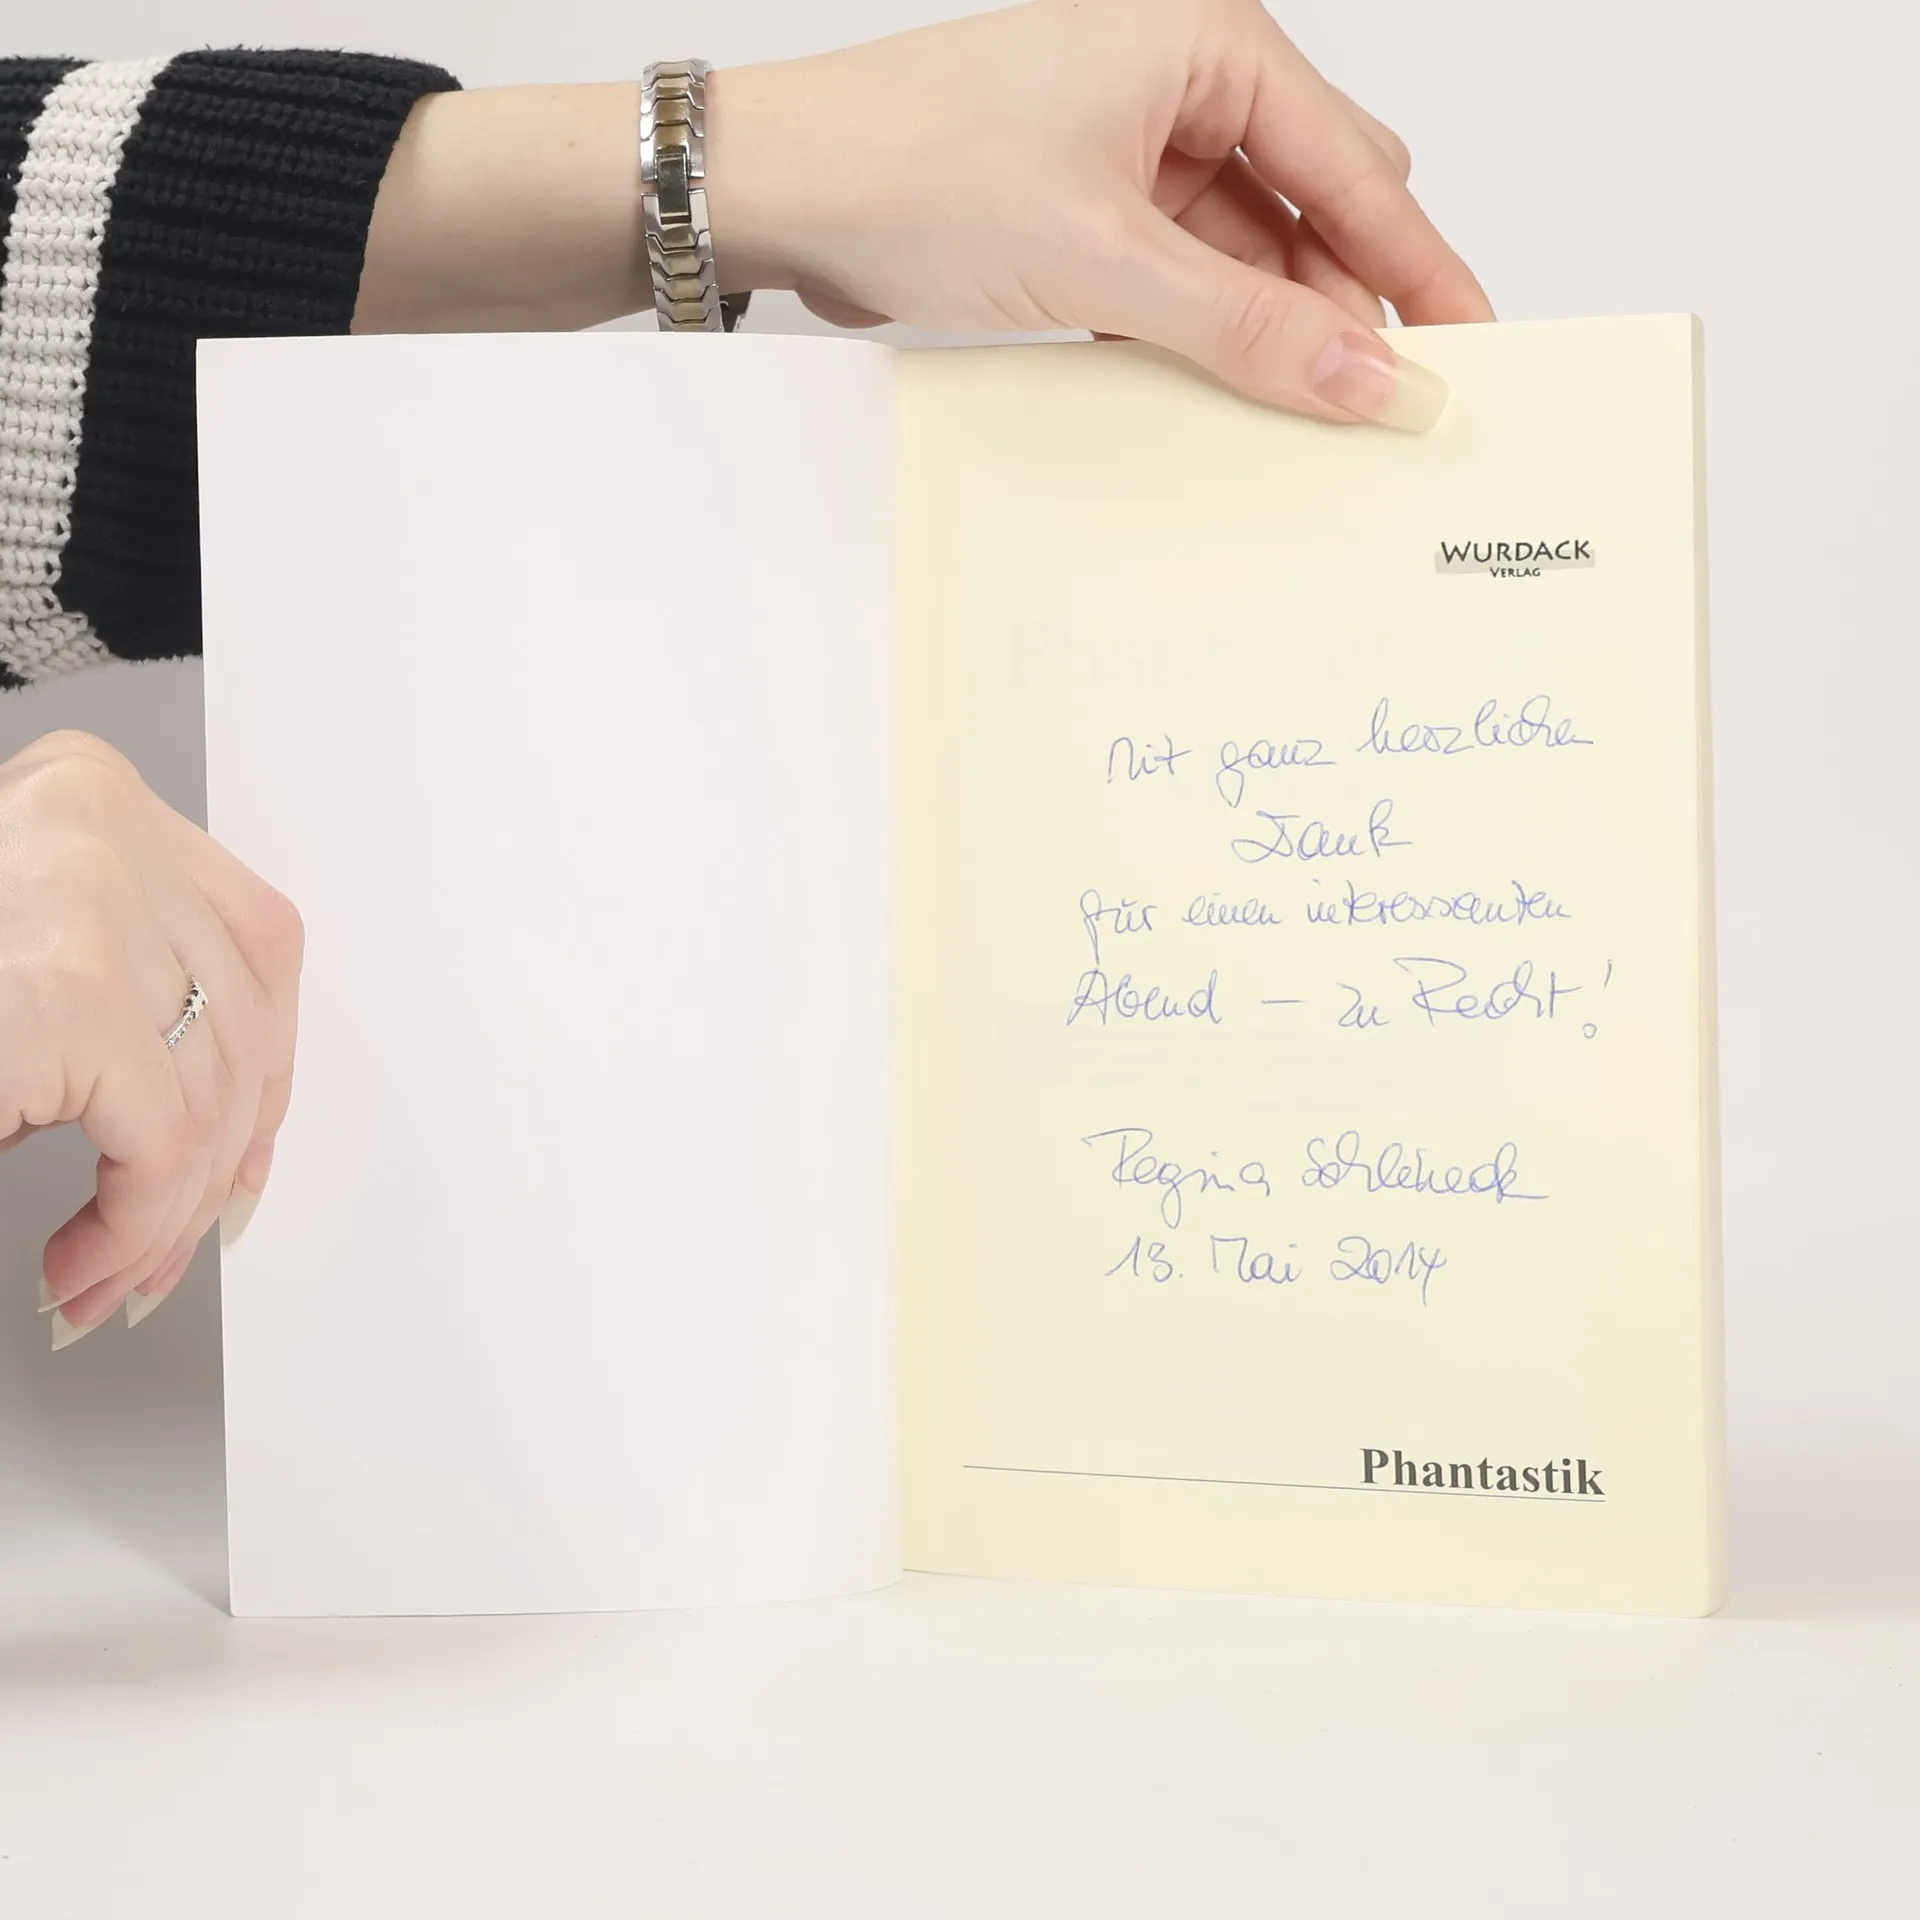 WURDACK
VERLAG
Mit ganz herzlichen
Dank
für einen interessanten
Abend – zu Recht!
Regina Schleheck
13. Mai 2014
Phantastik